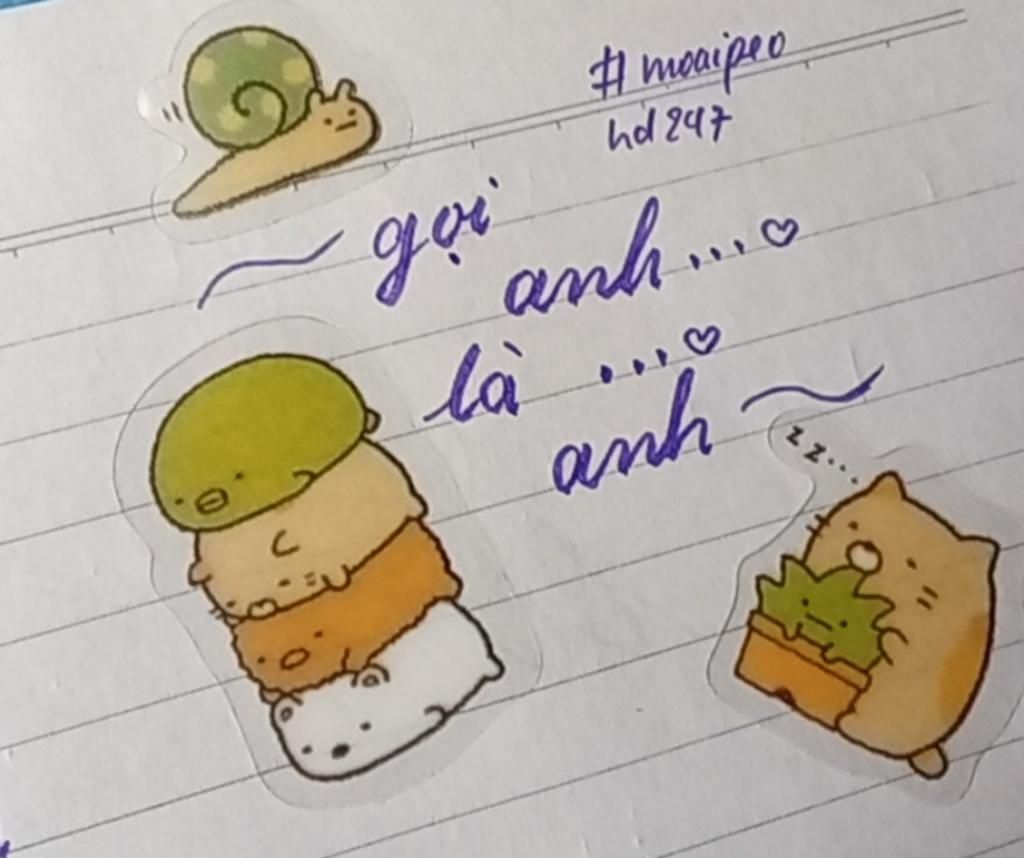 #moaipeo
hd247
~ gọi
anh...♡
là ...♡
anh ~
zz...